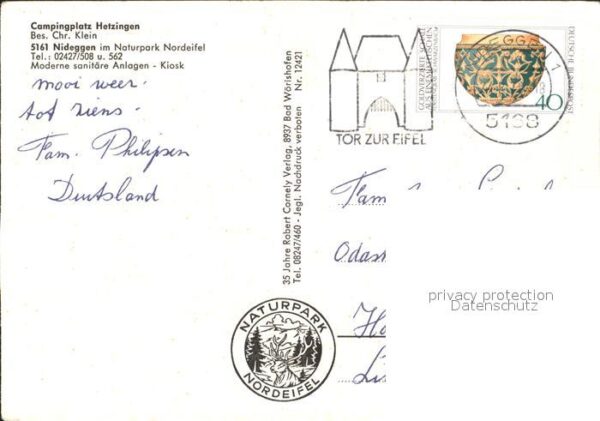 Campingplatz Hetzingen
Bes. Chr. Klein
5161 Nideggen im Naturpark Nordeifel
Tel.: 02427/508 u. 562
Moderne sanitäre Anlagen - Kiosk
mooi weer.
tot ziens.
Fam. Philipsen
Deutsland
35 Jahre Robert Cornely Verlag, 8937 Bad Wörishofen
Tel. 08247/460 - Jegl. Nachdruck verboten Nr. 12421
TOR ZUR EIFEL
DEUTSCHE BUNDESPOST
40
Fam
Odast
privacy protection
Datenschutz
NATURPARK
NORDEIFEL